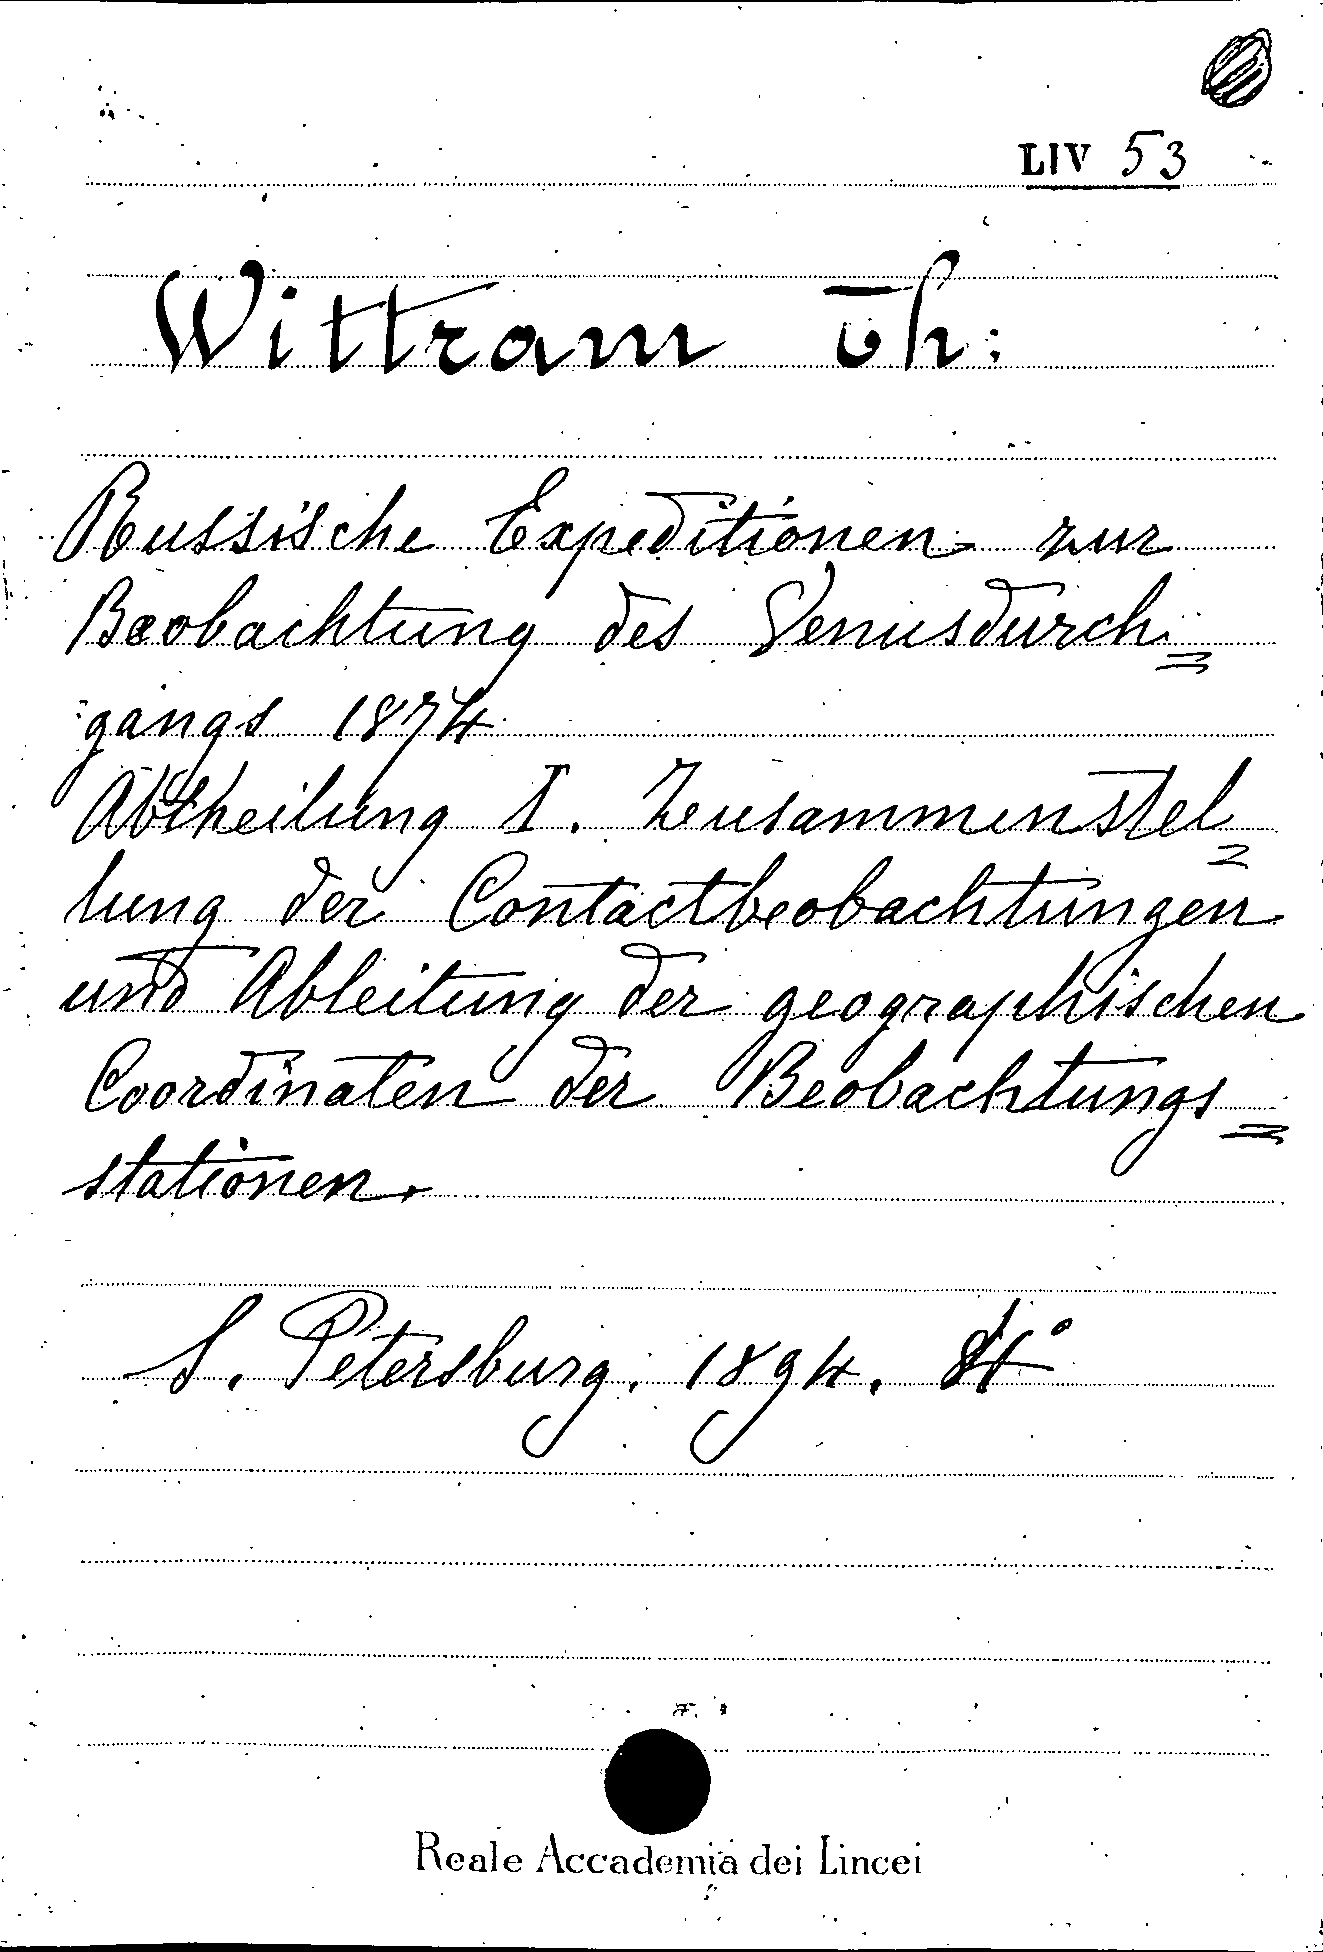 LIV 53
Wittram Th:
Russische Expeditionen zur
Beobachtung des Venusdurch=
gangs 1874
Abtheilung I. Zusammenstel=
lung der Contactbeobachtungen
und Ableitung der geographischen
Coordinaten der Beobachtungs=
stationen.
S. Petersburg. 1894. 4°
Reale Accademia dei Lincei